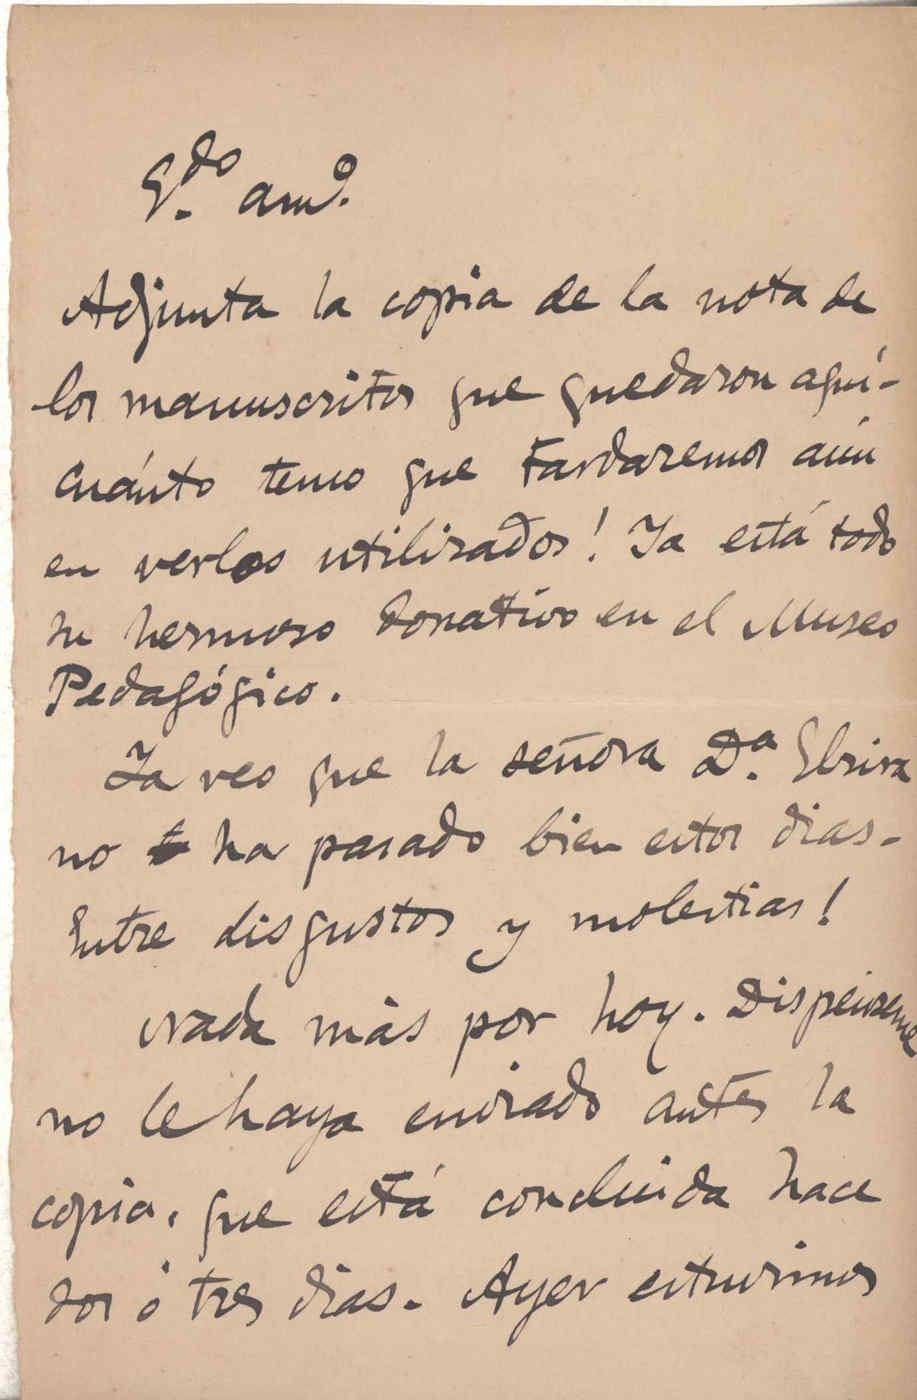 Q.do am.º
Adjunta la copia de la nota de
los manuscritos que quedaron aquí-
cuánto temo que tardaremos aún
en verlos utilizados! Ya está todo
su hermoso donativo en el Museo
Pedagógico.
Ya veo que la señora D.ª Elvira
no ha pasado bien estos dias-
Entre disgustos y molestias!
Nada más por hoy. Dispénseme
no le haya enviado antes la
copia, que está concluida hace
dos ó tres dias. Ayer estuvimos